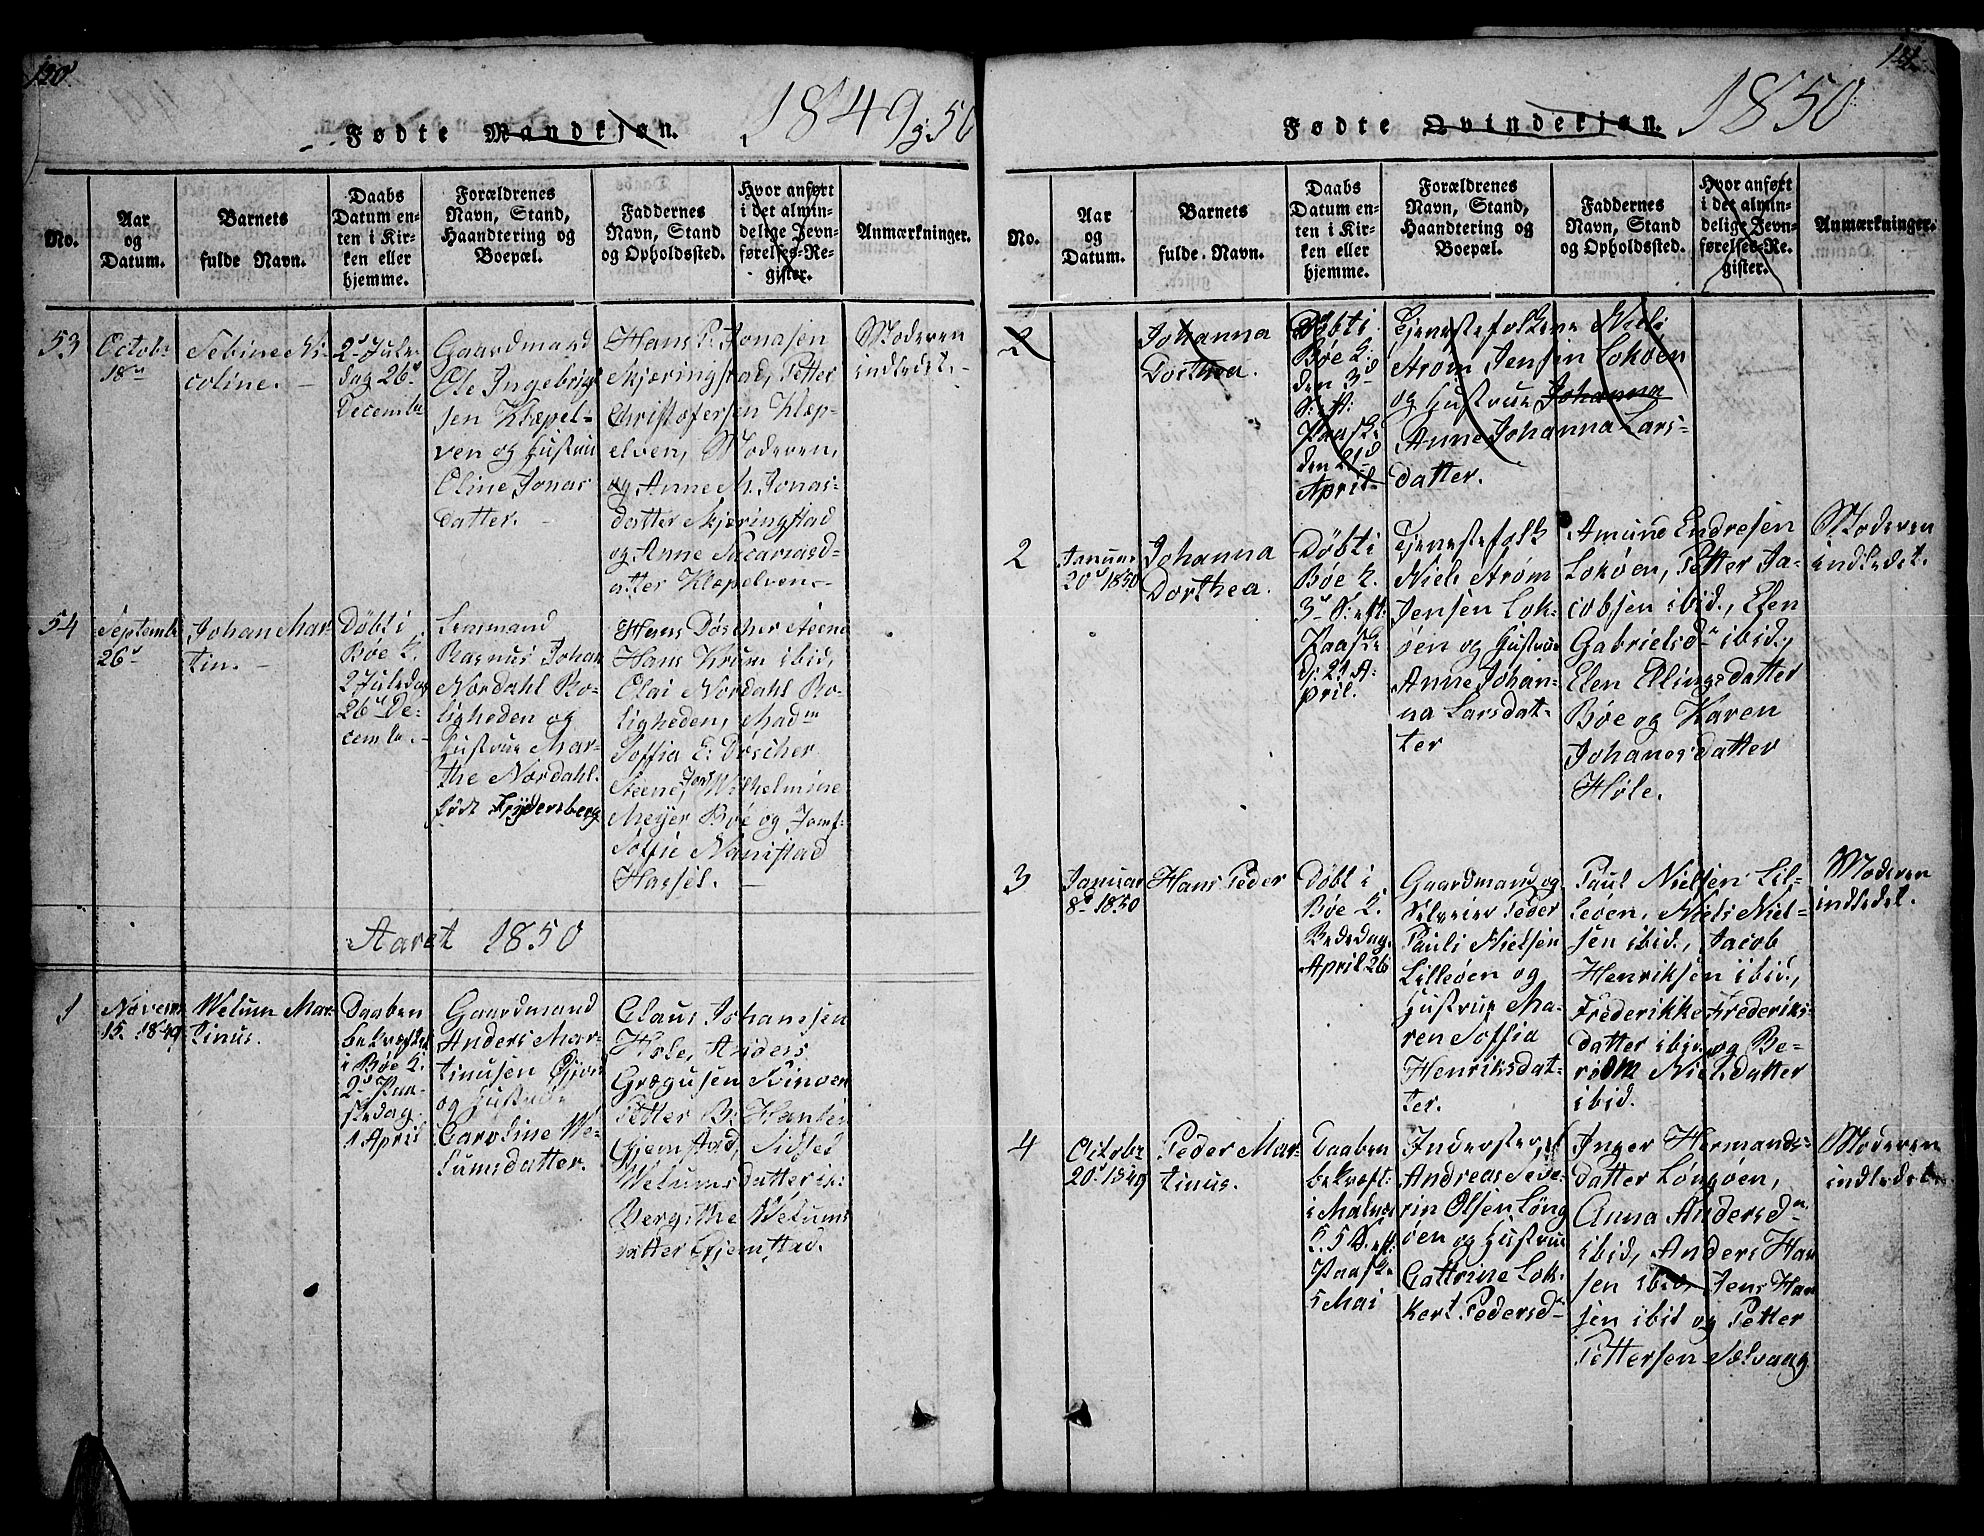 120.
Fødte Mandkjøn. 1849 g 50
No.
Aar
og
Datum.
Barnets
fulde Navn.
Daabs
Datum en-
ten i Kir-
ken eller
hjemme.
Forældrenes
Navn, Stand,
Haandtering og
Boepæl.
Faddernes
Navn, Stand
og Opholdssted.
Hvor anført
i det almin-
delige Jevn-
førelses-Re-
gister.
Anmærkninger.
53
Octobr
18d
Sebine Ni-
coline. -
2d Jule-
dag 26d
Decembr
Gaardmand
Ole Ingebrigt
sen Klæpel-
ven og Hustrue
Oline Jonas
datter. -
Hans P. Jonasen
Skjæringstad, Petter
Christofersen Klæp-
elven, Moderen,
og Anne M. Jonas-
datter Skjæringstad
og Anne Sacariasd-
atter Klæpelven.-
Moderen
indledet. -
54
Septembr
26d
Johan Mar
tin. -
Døbt i
Bøe K.
2 Juledag
26d De-
cembr. -
Rasnus Johan
Nordahl Ro-
ligheden og
Hustrue Mar-
the Nordahl.
født Frydersberg
Hans Døscher Steene
Hans Krum ibid,
Olai Nordahl Ro-
ligheden, Madm
Soffia E. Døscher
Steene, Jomf Wilhelmine
Meyer Bøe og Jomf
Soffie Nanistad
Hassel. -
Aaret 1850
1
Novem
15. 1849
Welum Mar
tinus.
Daaben
bekræftet
i Bøe K.
2d Paa-
skedag
1 April
Gaardmand
Anders Mar-
tinusen Gjem
og Hustrue
Caroline We-
lumsdatter.
Claus Johansen
Hole, Anders
Grægusen Svinøen
Petter B. Hansen
Gjemstad, Sidsed
Welumsdatter ib.
Bergithe Welums
datter Gjemstad.
121.
Fødte Qvindekjøn. 1850
No.
Aar
og
Datum.
Barnets
fulde Navn.
Daabs
Datum en-
ten i Kir-
ken eller
hjemme.
Forældrenes
Navn, Stand,
Haandtering og
Boepæl.
Faddernes
Navn, Stand
og Opholdssted.
Hvor anført
i det almin-
delige Jevn-
førelses-Re-
gister.
Anmærkninger.
2
Johanna
Dorthea.
Døbt i
Bøe K.
den 3d
S. eft:
Paaske
den 21d
April
Tjenestefolkene Niels
Strøm Jensen Lokøen
og Hustrue Johanna
Anne Johanna Lars-
datter.
2
Januar
20d 1850
Johanna
Dorthea.
Døbt i
Bøe K.
3d S: eft:
Paaske
d: 21 A-
pril.
Tjenestefolk
Niels Strøm
Jensen Lok-
øen og Hustrue
Anne Johan-
na Larsdat-
ter
Amund Endresen
Lokøen, Petter Ja-
cobsen ibid., Elen
Gabrielsdr ibid.,
Elen Ellingsdatter
Bøe og Karen
Johanesdatter
Hole.
Moderen
indledet.
3
Januar
8d 1850
Hans Peder
Døbt i
Bøe K.
Bededag
April 26
Gaardmand og
Selveier Peder
Pauli Nielsen
Lilleøen og
Hustrue Ma-
ren Soffia
Henriksdat-
ter.
Paul Nielsen Lil-
leøen, Niels Niel-
sen ibid., Jacob
Henriksen ibid.,
Frederikke Frederiks-
datter ibid. og Be-
rith Nielsdatter
ibid.
Moderen
indledet.
4
Octobr
20d 1849
Peder Mar-
tinus.
Daaben
bekræft:
i Malnes
K. 5 S. eft:
Paaske
5 Mai
Inderster
Andreas Seve-
rin Olsen Løng
øen og Hustrue
Cattrine Lok-
kert Pedersdr
Inger Hermands-
datter Løngøen,
Anna Andersdr
ibid, Anders Han
sen ibid, Jens Han
sen ibid og Petter
Pettersen Sælvaag
Moderen
indledet.